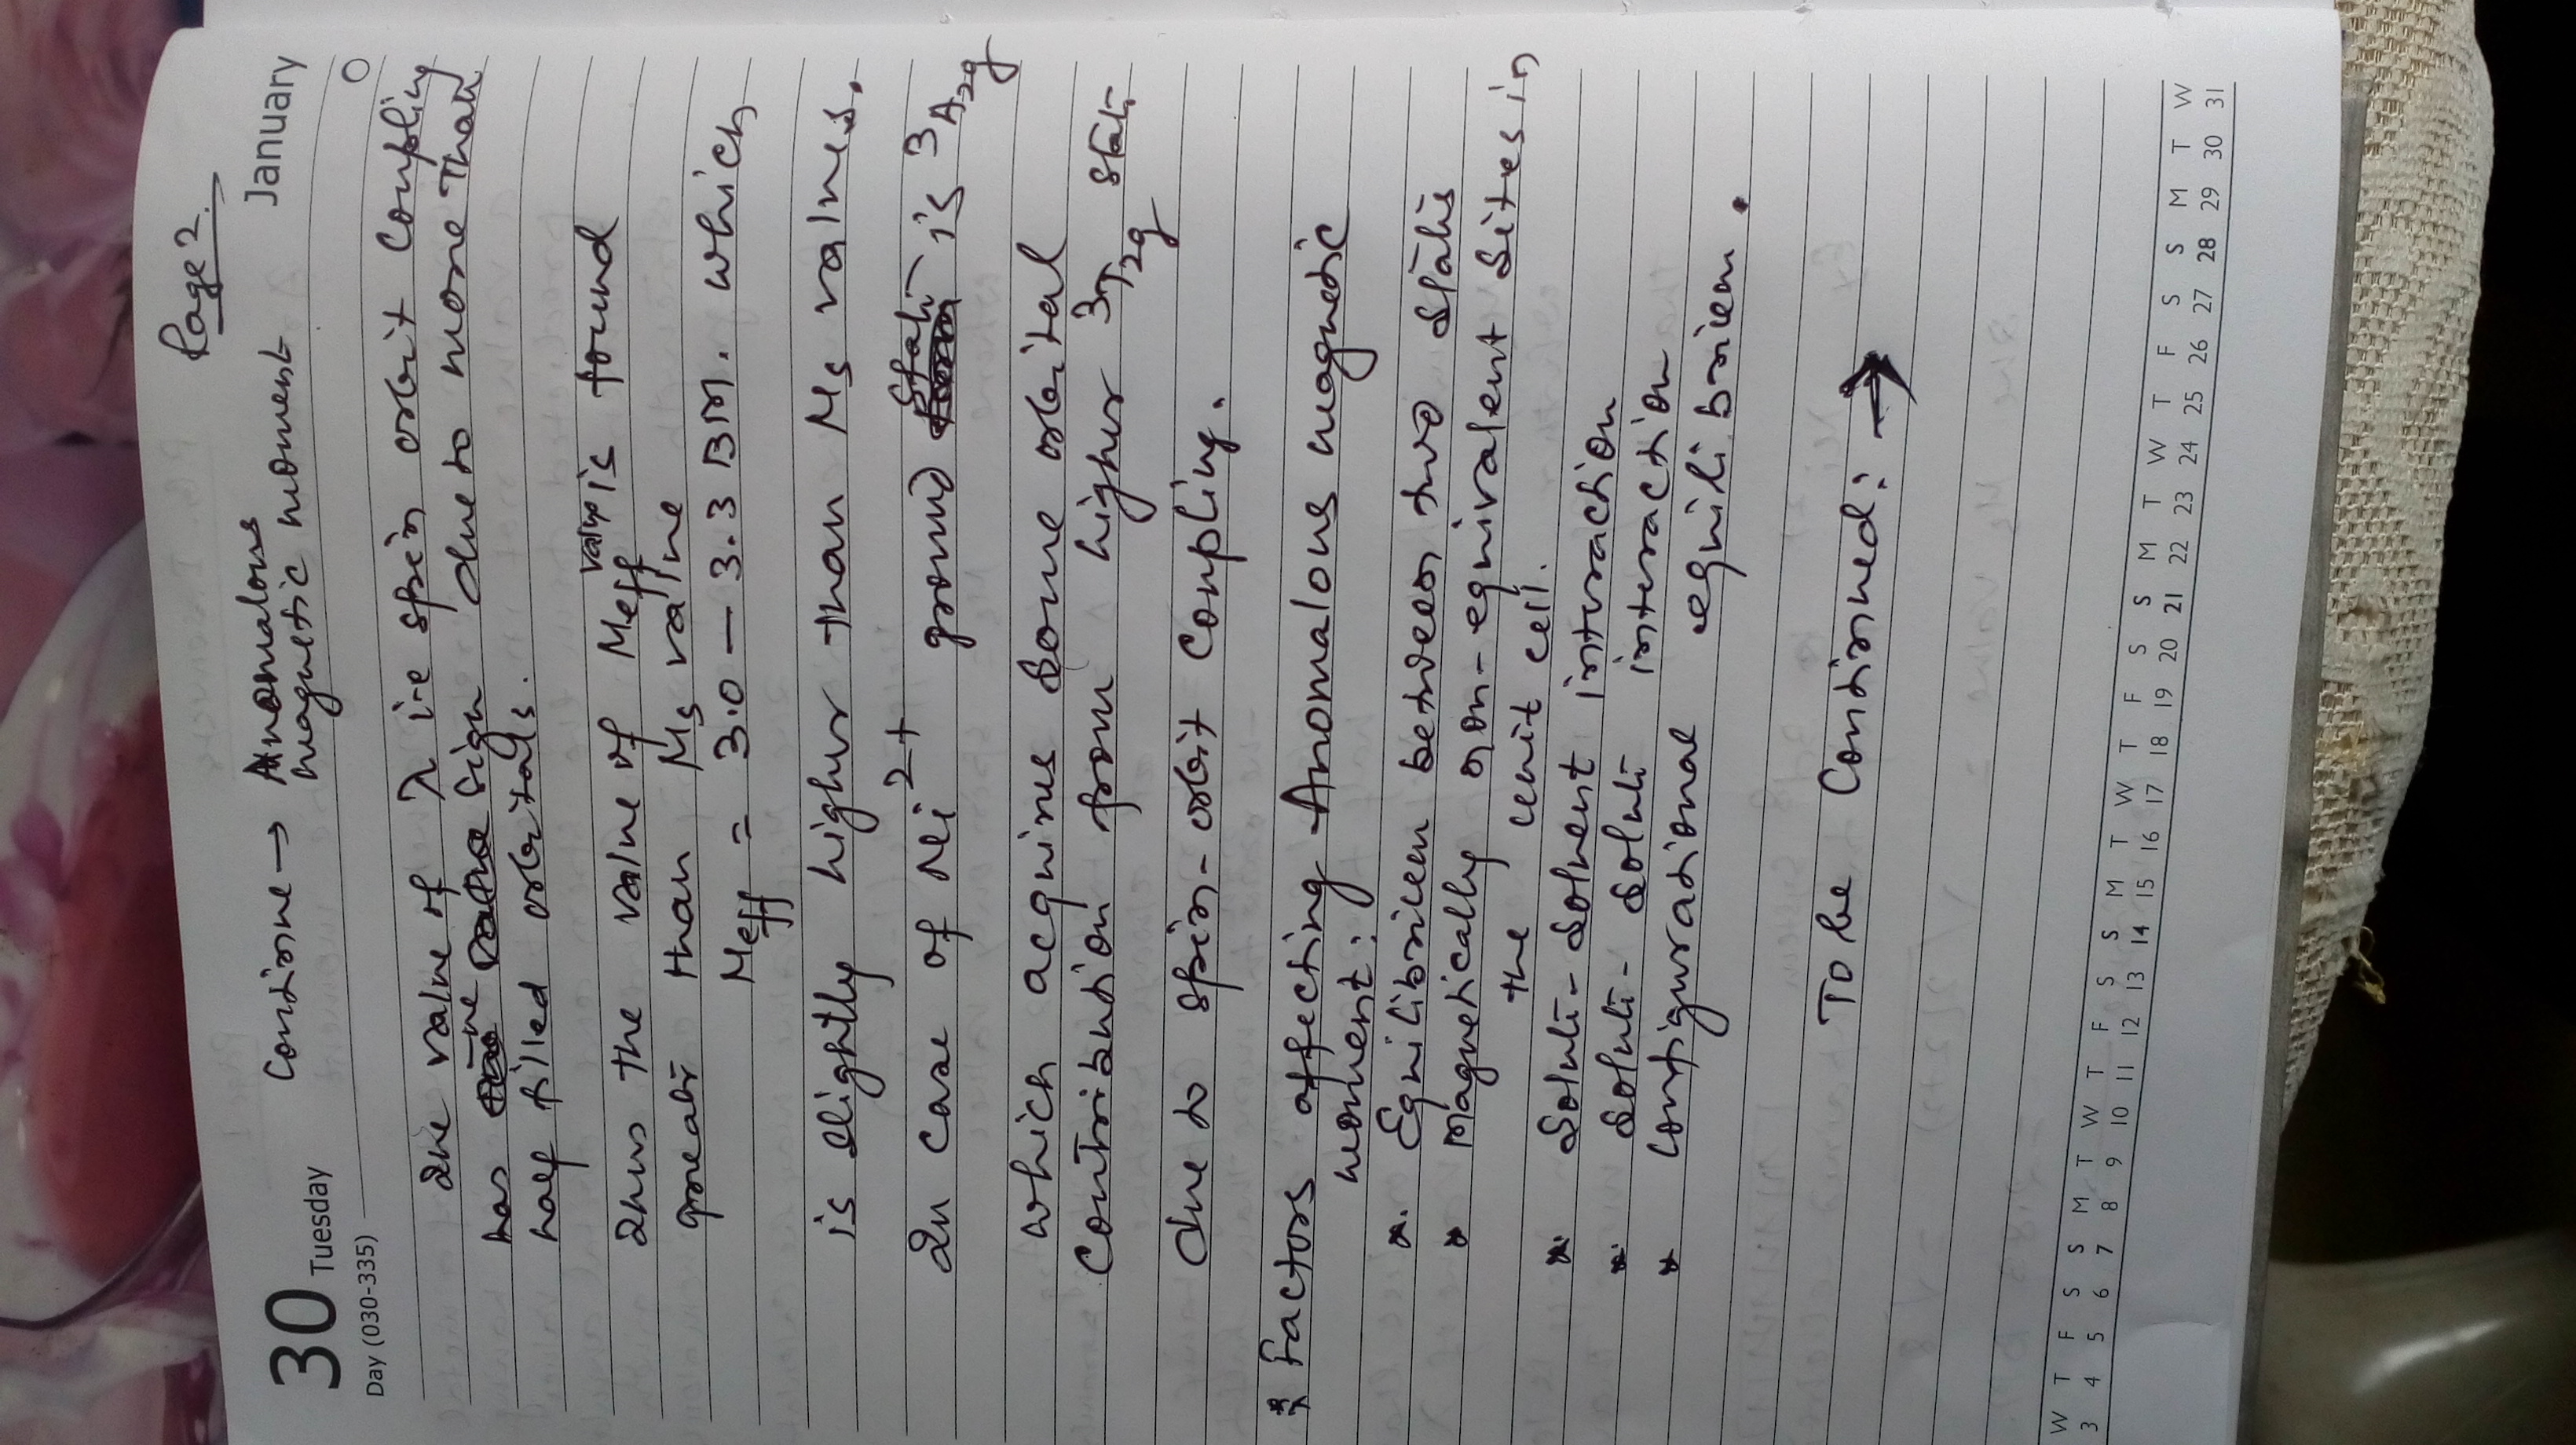 Page 2.
30 Tuesday
January
Day (030-335)
Continue → Anomalous
magnetic moment
The value of λ i.e spin orbit coupling
has -ve sign due to more than
half filled orbitals.
Thus the value of Meff value is found
greater than Ms value
Meff = 3.0 — 3.3 BM. which
is slightly higher than Ms values.
In case of Ni2+ ground state is 3A2g
which acquires some orbital
contribution from higher 3T2g state
due to spin-orbit coupling.
* Factors affecting Anomalous magnetic
moment:
* Equilibrium between two states
* Magnetically non-equivalent sites in
the unit cell.
* Solute-Solvent interaction
* Solute-Solute interaction
* Configurational equilibrium.
To be Continued: →
W T F S S M T W T F S S M T W T F S S M T W T F S S M T W
3 4 5 6 7 8 9 10 11 12 13 14 15 16 17 18 19 20 21 22 23 24 25 26 27 28 29 30 31